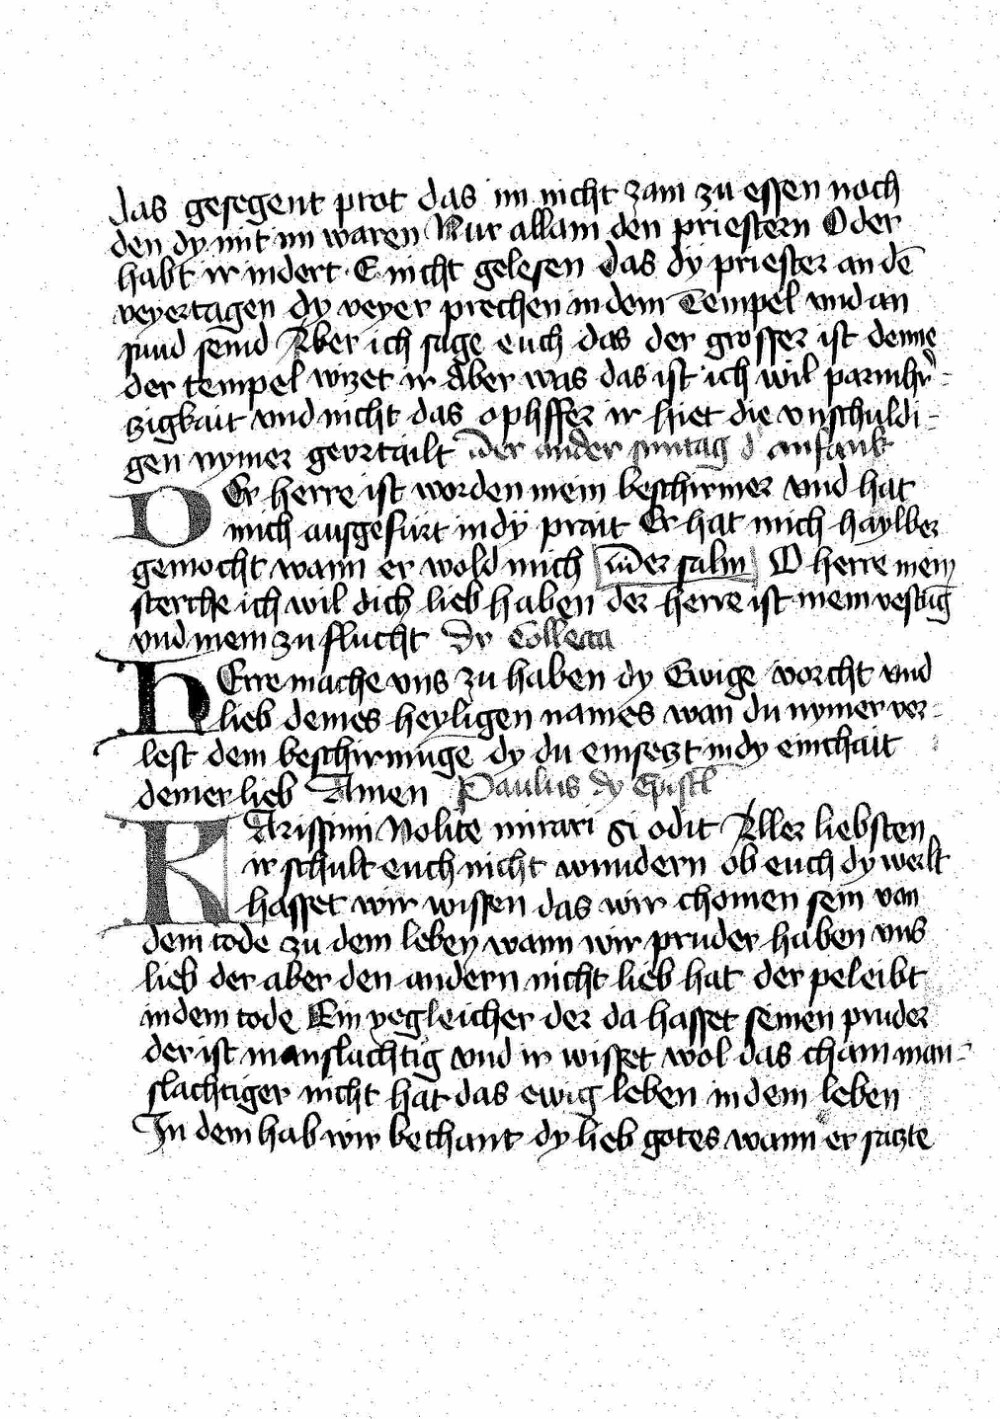 das gesegent prot das im nicht zam zu essen noch
den dy mit im waren Nur allain den priestern Oder
habt ir indert E nicht gelesen das dy priester an dē
veyertagen dy veyer prechen in dem Tempel vnd an
sund seind Aber ich sage euch das der grosser ist denne
der tempel wizet ir Aber was das ist ich wil parmhr̄-
zigkait vnd nicht das ophffer ir hiet die vnschuldi-
gen nymer geortailt der ander suntag d' anfank
DEr herre ist worden mein beschirmer vnd hat
mich ausgefürt in dÿ prait Er hat mich haylber
gemocht wann er wold mich der salm O herre mein
sterche ich wil dich lieb haben der herre ist mein vestūg
vnd mein zu flucht dy Collecta
HErre mache vns zu haben dy Ewige vorcht vnd
lieb deines heyligen names wan du nymer ver-
lest dem beschirmūge dy du einsetzt in dy ainchait
deiner lieb Amen Paulus dy Epistl
KArissimi Nolite mirari si odit Aller liebsten
ir schult euch nicht wundern ob euch dy werlt
hasset wir wissen das wir chomen sein von
dem tode zu dem leben wann wir pruder haben vns
lieb der aber den andern nicht lieb hat der peleibt
in dem tode Ein yegleicher der da hasset seinen pruder
der ist manslachtig vnd ir wisset wol das chain man-
slachtiger nicht hat das ewig leben in dem leben
In dem hab wir bechant dy lieb gotes wann er saczte